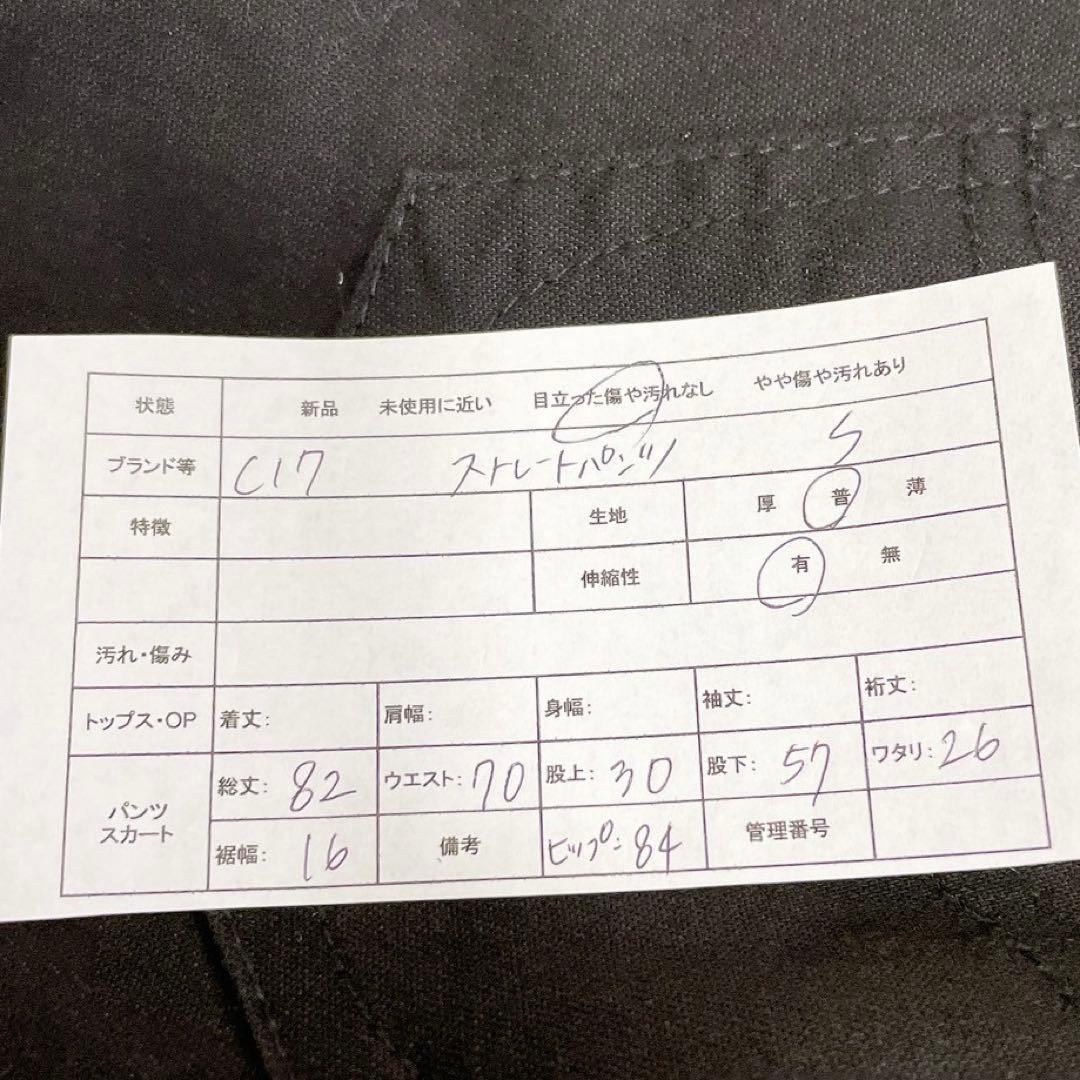 状態 新品 未使用に近い 目立った傷や汚れなし やや傷や汚れあり
ブランド等 C17 ストレートパンツ S
特徴 生地 厚 普 薄
伸縮性 有 無
汚れ・傷み
トップス・OP 着丈: 肩幅: 身幅: 袖丈: 裄丈:
パンツ スカート 総丈: 82 ウエスト: 70 股上: 30 股下: 57 ワタリ: 26
裾幅: 16 備考 ヒップ: 84 管理番号